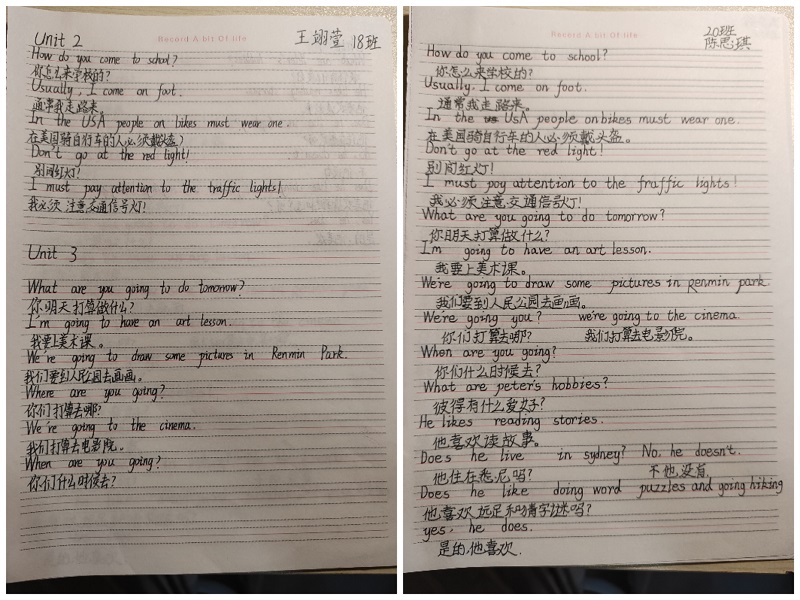 Record A bit Of life
Unit 2
王翊萱 18班
How do you come to school?
你怎么来学校的?
Usually, I come on foot.
通常我走路来。
In the USA people on bikes must wear one.
在美国骑自行车的人必须戴头盔?
Don't go at the red light!
别闯红灯!
I must pay attention to the traffic lights!
我必须注意交通信号灯!
Unit 3
What are you going to do tomorrow?
你明天打算做什么?
I'm going to have an art lesson.
我要上美术课。
We're going to draw some pictures in Renmin Park.
我们要到人民公园去画画。
Where are you going?
你们打算去哪?
We're going to the cinema.
我们打算去电影院。
When are you going?
你们什么时候去?
Record A bit Of life
20班
陈思琪
How do you come to school?
你怎么来学校的?
Usually, I come on foot.
通常我走路来。
In the USA people on bikes must wear one.
在美国骑自行车的人必须戴头盔。
Don't go at the red light!
别闯红灯!
I must poy attention to the fraffic lights!
我必须注意交通信号灯!
What are you going to do tomorrow?
你明天打算做什么?
I'm going to have an art lesson.
我要上美术课。
We're going to draw some pictures in Renmin park.
我们要到人民公园去画画。
We're going you? we're going to the cinema.
你们打算去哪? 我们打算去电影院。
When are you going?
你们什么时候去?
What are peter's hobbies?
彼得有什么爱好?
He likes reading stories.
他喜欢读故事。
Does he live in sydney? No, he doesn't.
他住在悉尼吗? 不他没有.
Does he like doing word puzzles and going hiking
他喜欢远足和猜字谜吗?
yes, he does.
是的,他喜欢.